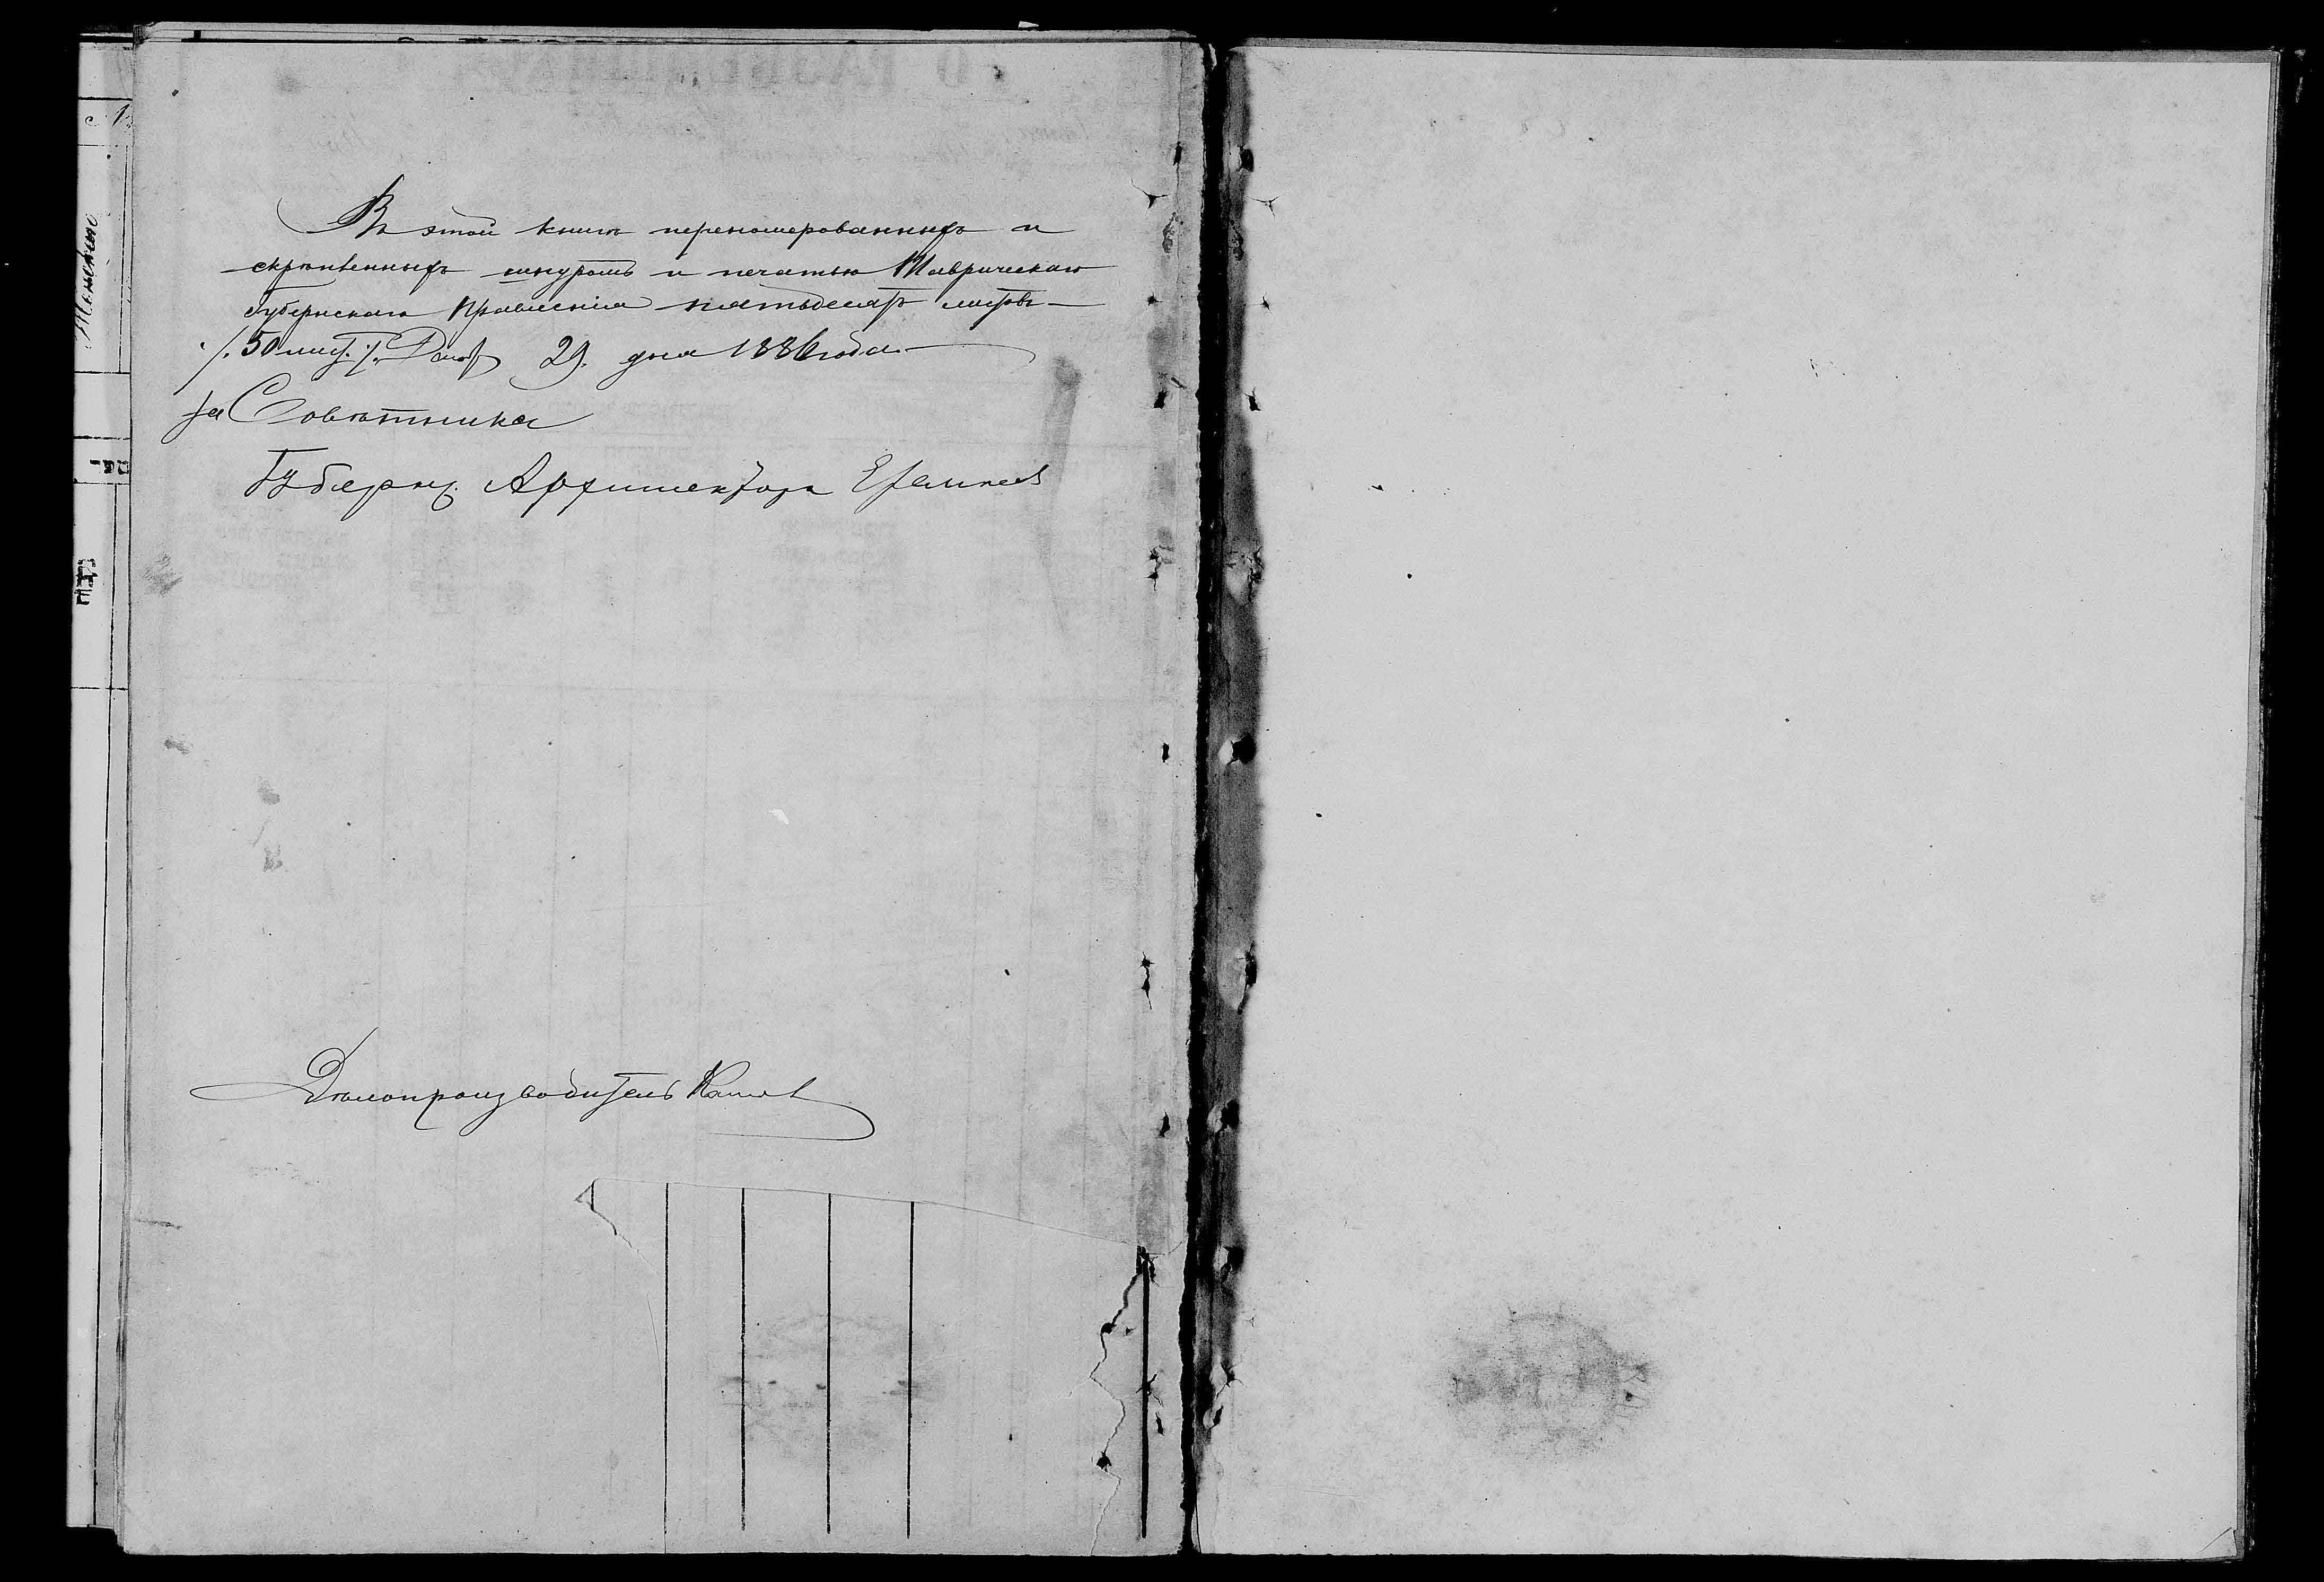 Въ этой книгѣ перенумерованныхъ и
скрѣпленныхъ шнуромъ и печатью Таврическаго
Губернскаго Правленія пятьдесятъ листовъ
/. 50 лист. /. Декаб 29. дня 1886 года.
За Совѣтника
Губернс. Архитекторъ
Дѣлопроизводитель